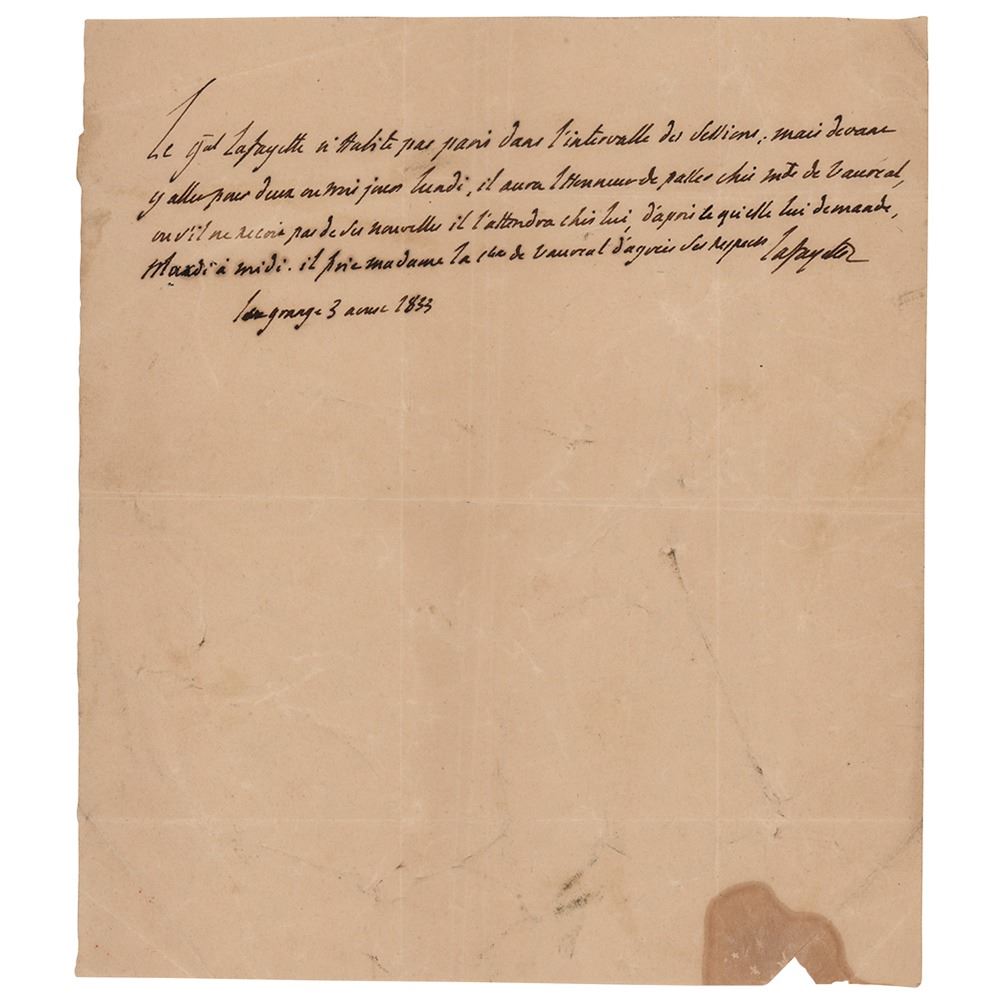 Le gal Lafayette n'habite pas paris dans l'intervalle des Sessions; mais devant
y aller pour deux ou trois jours lundi, il aura l'honneur de passer chés mde de Vaureal,
ou s'il ne recoit pas de ses nouvelles il l'attendra chés lui, d'après ce qu'elle lui demande,
Mardi à midi. il prie madame la ctesse de Vaureal d'agréer ses respects Lafayette
Lagrange 3 aoust 1833